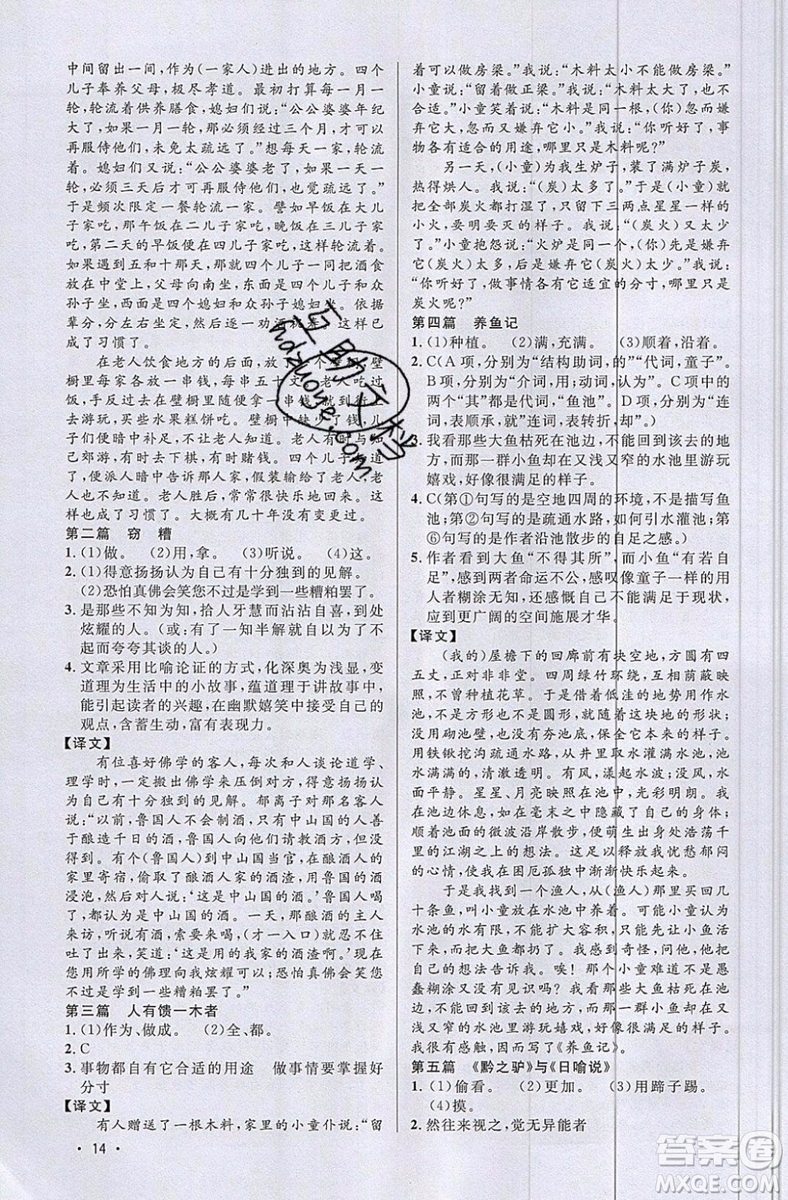 中间留出一间，作为（一家人）进出的地方。四个
儿子奉养父母，极尽孝道。最初打算每一月一
轮，轮流着供养膳食，媳妇们说：“公公婆婆年纪
大了，如果一月一轮，必须三个月，才可以再次侍
奉，未免太疏远了。”于是想每天一家一轮，轮流
着。媳妇们又说：“公公婆婆老了，如果一日一
轮，必须三天后才可以再侍奉，也觉疏远了。”
于是频次限定一餐轮流一家。譬如早饭在大儿
子家吃，那午饭在二儿子家吃，晚饭在三儿子家
吃，第二天的早饭便在四儿子家吃，这样轮流着。
如果碰到五和十那天，那么四个儿子一同把酒食
放在中堂上，父母向南坐，东面是四个儿子和众
孙子坐，西面是四个媳妇和众孙媳妇坐，依据
辈分，分左右坐定，然后一次次向老人祝寿，这样
成了习惯了。
在老人饮食地方的后面放置一个壁橱，壁
橱里每家各放一串钱，每串五十文。老人每次吃
饭，手反过去在壁橱中随意拿一串钱，便到街上
去游玩，买些水果糕饼吃。壁橱中缺少了钱，儿
子们便暗中补足，不让老人知道。老人有时去知
交那里，有时下棋，有时赌钱。四个儿子知道他
们去后，便派人暗中告诉那家，假装输钱给老人。
老人胜后，便欢天喜地，快乐地回家了。这样也
成了习惯了。大概有几十年没有改变。
第二篇　窃　糟
1. (1)做。　(2)用，拿。　(3)听说。　(4)这。
2. (1)得意扬扬认为自己有十分独到的见解。
(2)恐怕真佛会笑您不过是得到一些糟粕罢了。
3. 是那些不知为知，拾人牙慧而沾沾自喜，到处
炫耀的人。（或：有了一知半解就自以为了不
起而夸夸其谈的人。）
4. 文章采用比喻论证的方式，化深奥为浅显，变
道理为生活中的小故事，蕴道理于讲故事中，
能引起读者的兴趣，在幽默嬉笑中接受自己的
观点，含蓄生动，富有表现力。
【译文】
有位喜好佛学的客人，每次和人谈论道学、
理学，一定搬出佛学来压倒对方，得意扬扬认为
自己有十分独到的见解。郁离子对那名客人说
道：“以前，鲁国人不会制酒，只有中山国的人善
于酿造千日的酒，鲁国人向他们请教酿酒的方
法，没得到。有个（鲁人）到中山国当官，在酒的
家里寄宿，偷取了他家酿酒的酒渣，用鲁国的酒
浸泡，然后对人说：‘这是中山国的酒。’鲁国人喝
了，都认为是中山国的酒。一天，那酿酒的主人
来访，听说有酒，索要来喝，（才一入口）就吐
了出来，笑道：‘这是我家的酒渣啊。’现在
您用所学的佛理向我炫耀可以，但恐怕真佛会笑
您不过是得到一些糟粕罢了。”
第三篇　人有馈一木者
1. (1)作为，做成。　(2)全、都。
2. C
3. 事物都自有它合适的用途　做事情要掌握好
分寸
【译文】
有人赠送了一根木料，家里的小童仆说：“留
· 14 ·
着可以做房梁。”我说：“木料太小不能做房梁。”
小童说：“留着做正梁。”我说：“木料太大了，也不
合适。”小童笑着说：“木料是同一根，（你）忽而嫌
弃它大，又忽而嫌弃它小。”我说：“你听好了，事
物各有合适的用途，哪里只是木料呢？”
另一天，（小童）为我生炉子，装了满炉子炭，
热得烘人。我说：“（炭）太多了。”于是（小童）就
把全部炭火都打湿了，只留下三两点星星一样的
小火，要明要灭的样子。我说：“（炭火）又太少
了。”小童说：“火炉是同一个，（你）先是嫌弃它
（炭火）太多，接着又嫌弃它（炭火）太少。”我说：
“你听好了，做事情应该有所节制，哪里只是
炭火呢？”
第四篇　养鱼记
1. (1)种植。　(2)满，充满。　(3)顺着，沿着。
2. C(A 项，分别为“结构助词，的”“代词，童子”。
B 项，分别为“介词，用；动词，认为”。C 项，
两个“其”，都为“代词，“鱼池”。D 项，分别为“连
词，表顺承，就”“连词，表转折，却”。)
3. 我看那些大鱼枯死在池边，不能回到该去的地方，
而那一群小鱼却在又浅又窄的水池里游玩
嬉戏，好像很满足的样子。
4. C(第①句写的是空地四周的环境，不是描写鱼
池；第②句写的是疏通水路，如何引水灌池；第
⑥句写的是作者沿池散步的自足之感。)
5. 作者看到大鱼“不得其所”，而小鱼“有若自
足”，感到两者命运不公，感慨当时的统治者用
人者糊涂无知，不会使用人才，感慨有才华的人
应到更广阔的空间施展才华。
【译文】
（我的）屋檐下的回廊前有块空地，方圆有四
五丈，正对着非非堂。四周绿竹环绕，互相荫蔽映
照，没有种植花草。我借着低洼的地势用所作
了一个池塘，不方不圆，随着这块地的形状；
没有用砖砌池壁，也没有夯池底，保全它的本来面貌。
用铁锹挖沟来疏通水路，从井里取水灌满水池。
水池满满的，清澈明净。有风，漾起波纹，无风，
水平如镜。星星、月亮映照在水中，光彩明朗。
我在池边休憩，影子如在毫末中隐藏了自己的身体；
顺着池面的微波沿岸散步，便萌生出身处浩荡千
里的江湖之上的想法。这足以释放我忧愁郁闷
的心情，使我在困厄孤独中渐渐快乐起来。
于是我找了一个渔人，从（渔人）那里买回几
十条鱼，叫小童在水池中放养着。小童认为
水池中的水有限，不能扩大容积，只把小鱼放到
水池中，而把大鱼扔了。我感到奇怪，问他，
他把自己的想法告诉我。唉！这个小童难道不是愚
蠢糊涂而没有见识吗！我看那些大鱼枯死在池
边，不能回到该去的地方，而那一群小鱼却在又
浅又窄的水池里游玩嬉戏，好像很满足的样子。
我很有感触，因而写了《养鱼记》。
第五篇　《黔之驴》与《日喻说》
1. (1)偷看。　(2)更加。　(3)用蹄子踢。
(4)摸。
2. 然往来视之，觉无异能者
互助文档
hdzuoye.com
答案圈
MXQE.COM